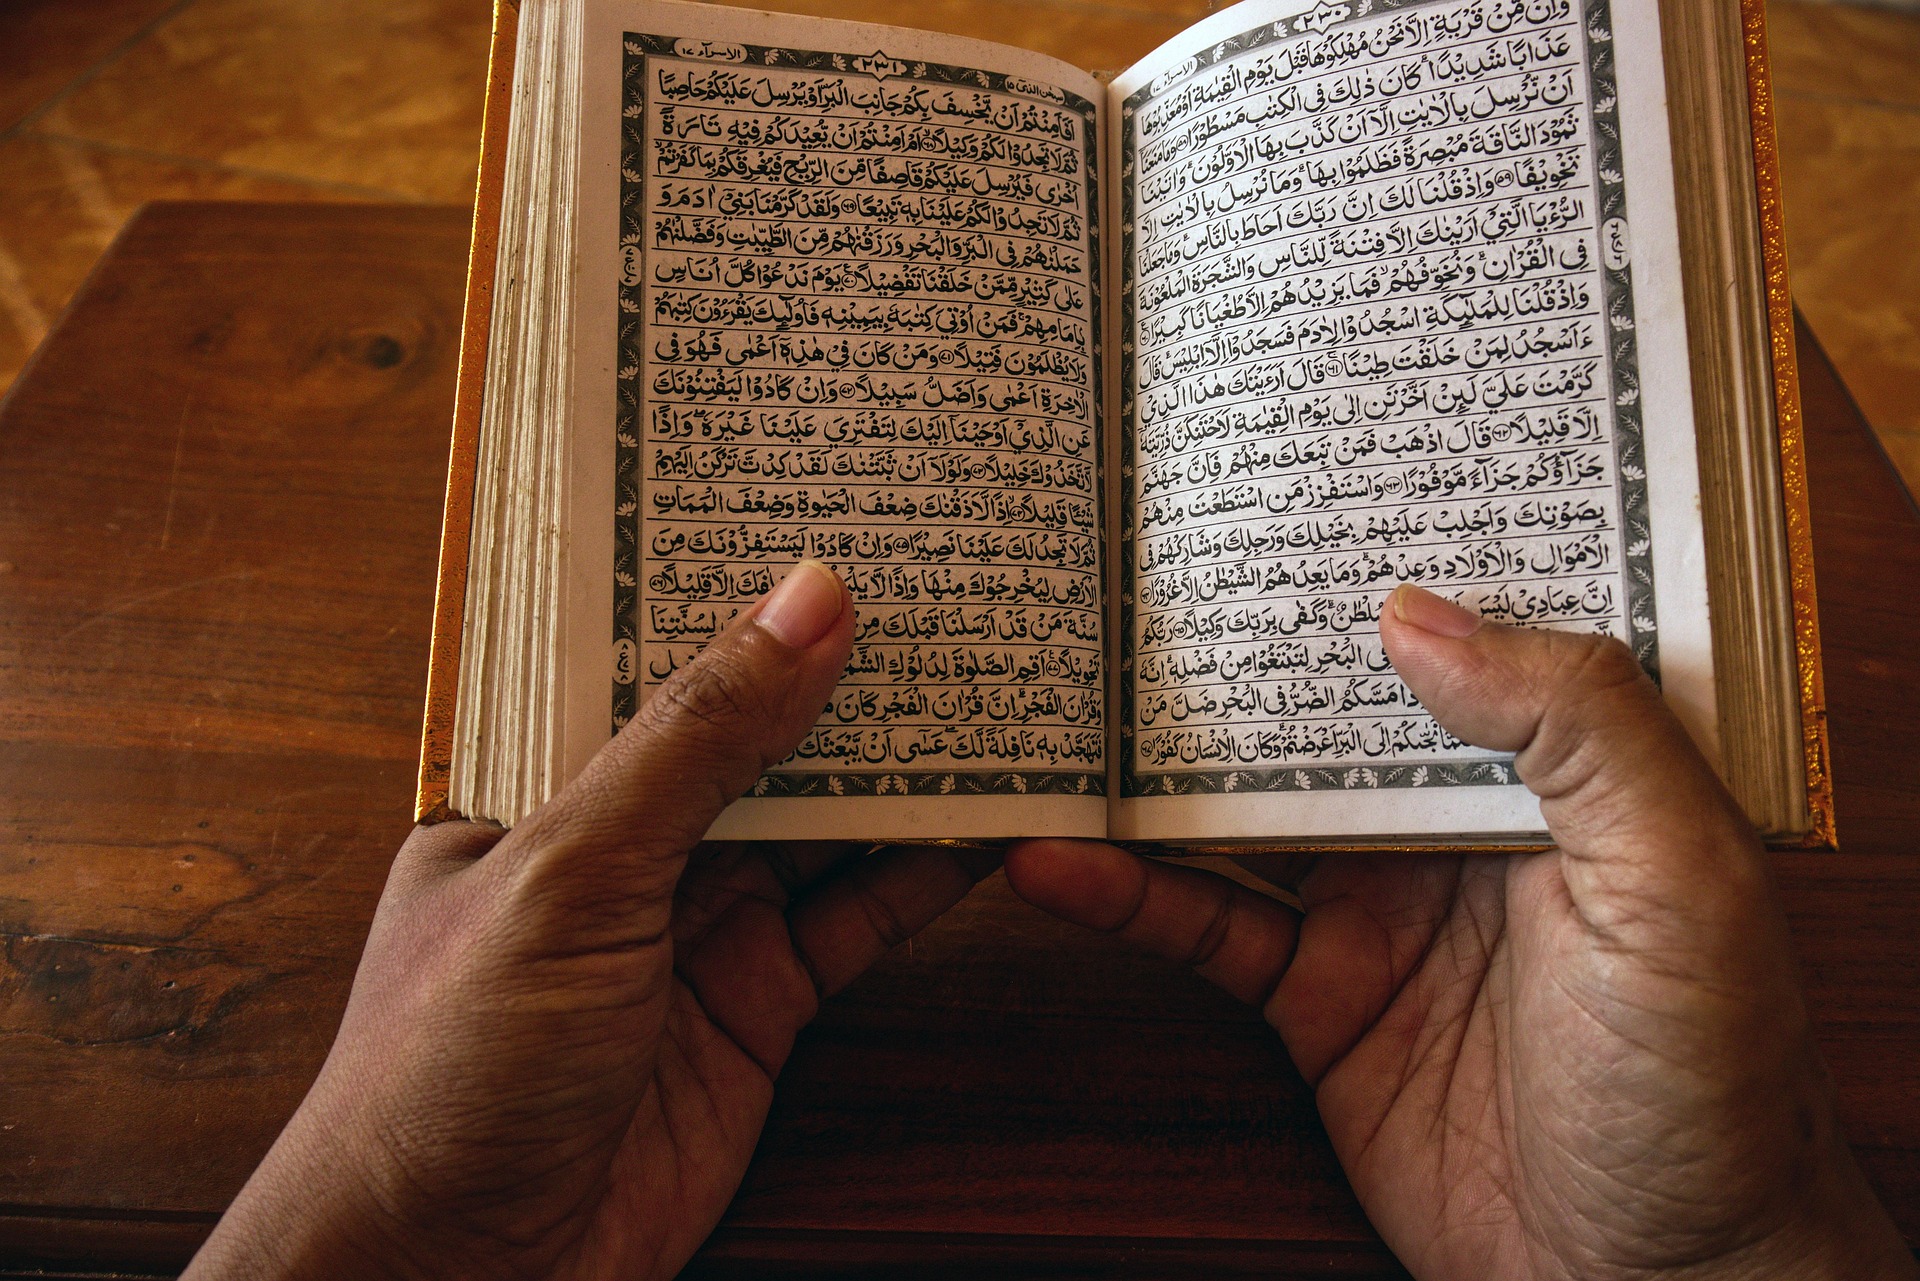 الاسرآء ١٧
٢٣٠
وَاِنْ مِّنْ قَرْيَةٍ اِلَّا نَحْنُ مُهْلِكُوْهَا قَبْلَ يَوْمِ الْقِيٰمَةِ اَوْ مُعَذِّبُوْهَا
عَذَابًا شَدِيْدًا ۗ كَانَ ذٰلِكَ فِى الْكِتٰبِ مَسْطُوْرًا ٥٨ وَمَا مَنَعَنَآ
اَنْ نُّرْسِلَ بِالْاٰيٰتِ اِلَّآ اَنْ كَذَّبَ بِهَا الْاَوَّلُوْنَ ۗ وَاٰتَيْنَا
ثَمُوْدَ النَّاقَةَ مُبْصِرَةً فَظَلَمُوْا بِهَا ۗ وَمَا نُرْسِلُ بِالْاٰيٰتِ اِلَّا
تَخْوِيْفًا ٥٩ وَاِذْ قُلْنَا لَكَ اِنَّ رَبَّكَ اَحَاطَ بِالنَّاسِ ۗ وَمَا جَعَلْنَا
الرُّءْيَا الَّتِيْٓ اَرَيْنٰكَ اِلَّا فِتْنَةً لِّلنَّاسِ وَالشَّجَرَةَ الْمَلْعُوْنَةَ
فِى الْقُرْاٰنِ ۗ وَنُخَوِّفُهُمْ ۙ فَمَا يَزِيْدُهُمْ اِلَّا طُغْيَانًا كَبِيْرًا ٦٠
وَاِذْ قُلْنَا لِلْمَلٰٓئِكَةِ اسْجُدُوْا لِاٰدَمَ فَسَجَدُوْٓا اِلَّآ اِبْلِيْسَ ۗ قَالَ
ءَاَسْجُدُ لِمَنْ خَلَقْتَ طِيْنًا ٦١ قَالَ اَرَءَيْتَكَ هٰذَا الَّذِيْ
كَرَّمْتَ عَلَيَّ لَئِنْ اَخَّرْتَنِ اِلٰى يَوْمِ الْقِيٰمَةِ لَاَحْتَنِكَنَّ ذُرِّيَّتَهٗٓ
اِلَّا قَلِيْلًا ٦٢ قَالَ اذْهَبْ فَمَنْ تَبِعَكَ مِنْهُمْ فَاِنَّ جَهَنَّمَ
جَزَآؤُكُمْ جَزَآءً مَّوْفُوْرًا ٦٣ وَاسْتَفْزِزْ مَنِ اسْتَطَعْتَ مِنْهُمْ
بِصَوْتِكَ وَاَجْلِبْ عَلَيْهِمْ بِخَيْلِكَ وَرَجِلِكَ وَشَارِكْهُمْ فِى
الْاَمْوَالِ وَالْاَوْلَادِ وَعِدْهُمْ ۗ وَمَا يَعِدُهُمُ الشَّيْطٰنُ اِلَّا غُرُوْرًا ٦٤
اِنَّ عِبَادِيْ لَيْسَ سُلْطٰنٌ ۗ وَكَفٰى بِرَبِّكَ وَكِيْلًا ٦٥ رَبُّكُمُ
الْبَحْرِ لِتَبْتَغُوْا مِنْ فَضْلِهٖ ۗ اِنَّهٗ
مَسَّكُمُ الضُّرُّ فِى الْبَحْرِ ضَلَّ مَنْ
نَجّٰىكُمْ اِلَى الْبَرِّ اَعْرَضْتُمْ ۗ وَكَانَ الْاِنْسَانُ كَفُوْرًا ٦٧
سبحن الذي ١٥
٢٣١
الاسرآء ١٧
اَفَاَمِنْتُمْ اَنْ يَّخْسِفَ بِكُمْ جَانِبَ الْبَرِّ اَوْ يُرْسِلَ عَلَيْكُمْ حَاصِبًا
ثُمَّ لَا تَجِدُوْا لَكُمْ وَكِيْلًا ٦٨ اَمْ اَمِنْتُمْ اَنْ يُّعِيْدَكُمْ فِيْهِ تَارَةً
اُخْرٰى فَيُرْسِلَ عَلَيْكُمْ قَاصِفًا مِّنَ الرِّيْحِ فَيُغْرِقَكُمْ بِمَا كَفَرْتُمْ ۙ
ثُمَّ لَا تَجِدُوْا لَكُمْ عَلَيْنَا بِهٖ تَبِيْعًا ٦٩ وَلَقَدْ كَرَّمْنَا بَنِيْٓ اٰدَمَ وَ
حَمَلْنٰهُمْ فِى الْبَرِّ وَالْبَحْرِ وَرَزَقْنٰهُمْ مِّنَ الطَّيِّبٰتِ وَفَضَّلْنٰهُمْ
عَلٰى كَثِيْرٍ مِّمَّنْ خَلَقْنَا تَفْضِيْلًا ٧٠ يَوْمَ نَدْعُوْا كُلَّ اُنَاسٍ
بِاِمَامِهِمْ ۚ فَمَنْ اُوْتِيَ كِتٰبَهٗ بِيَمِيْنِهٖ فَاُولٰٓئِكَ يَقْرَءُوْنَ كِتٰبَهُمْ
وَلَا يُظْلَمُوْنَ فَتِيْلًا ٧١ وَمَنْ كَانَ فِيْ هٰذِهٖٓ اَعْمٰى فَهُوَ فِى
الْاٰخِرَةِ اَعْمٰى وَاَضَلُّ سَبِيْلًا ٧٢ وَاِنْ كَادُوْا لَيَفْتِنُوْنَكَ
عَنِ الَّذِيْٓ اَوْحَيْنَآ اِلَيْكَ لِتَفْتَرِيَ عَلَيْنَا غَيْرَهٗ ۖ وَاِذًا
لَّاتَّخَذُوْكَ خَلِيْلًا ٧٣ وَلَوْلَآ اَنْ ثَبَّتْنٰكَ لَقَدْ كِدْتَّ تَرْكَنُ اِلَيْهِمْ
شَيْـًٔا قَلِيْلًا ٧٤ اِذًا لَّاَذَقْنٰكَ ضِعْفَ الْحَيٰوةِ وَضِعْفَ الْمَمَاتِ
ثُمَّ لَا تَجِدُ لَكَ عَلَيْنَا نَصِيْرًا ٧٥ وَاِنْ كَادُوْا لَيَسْتَفِزُّوْنَكَ مِنَ
الْاَرْضِ لِيُخْرِجُوْكَ مِنْهَا وَاِذًا لَّا اِلَّا قَلِيْلًا ٧٦
سُنَّةَ مَنْ قَدْ اَرْسَلْنَا قَبْلَكَ مِنْ لِسُنَّتِنَا
تَحْوِيْلًا ٧٧ اَقِمِ الصَّلٰوةَ لِدُلُوْكِ
وَقُرْاٰنَ الْفَجْرِ ۗ اِنَّ قُرْاٰنَ الْفَجْرِ كَانَ
فَتَهَجَّدْ بِهٖ نَافِلَةً لَّكَ ۖ عَسٰٓى اَنْ يَّبْعَثَكَ